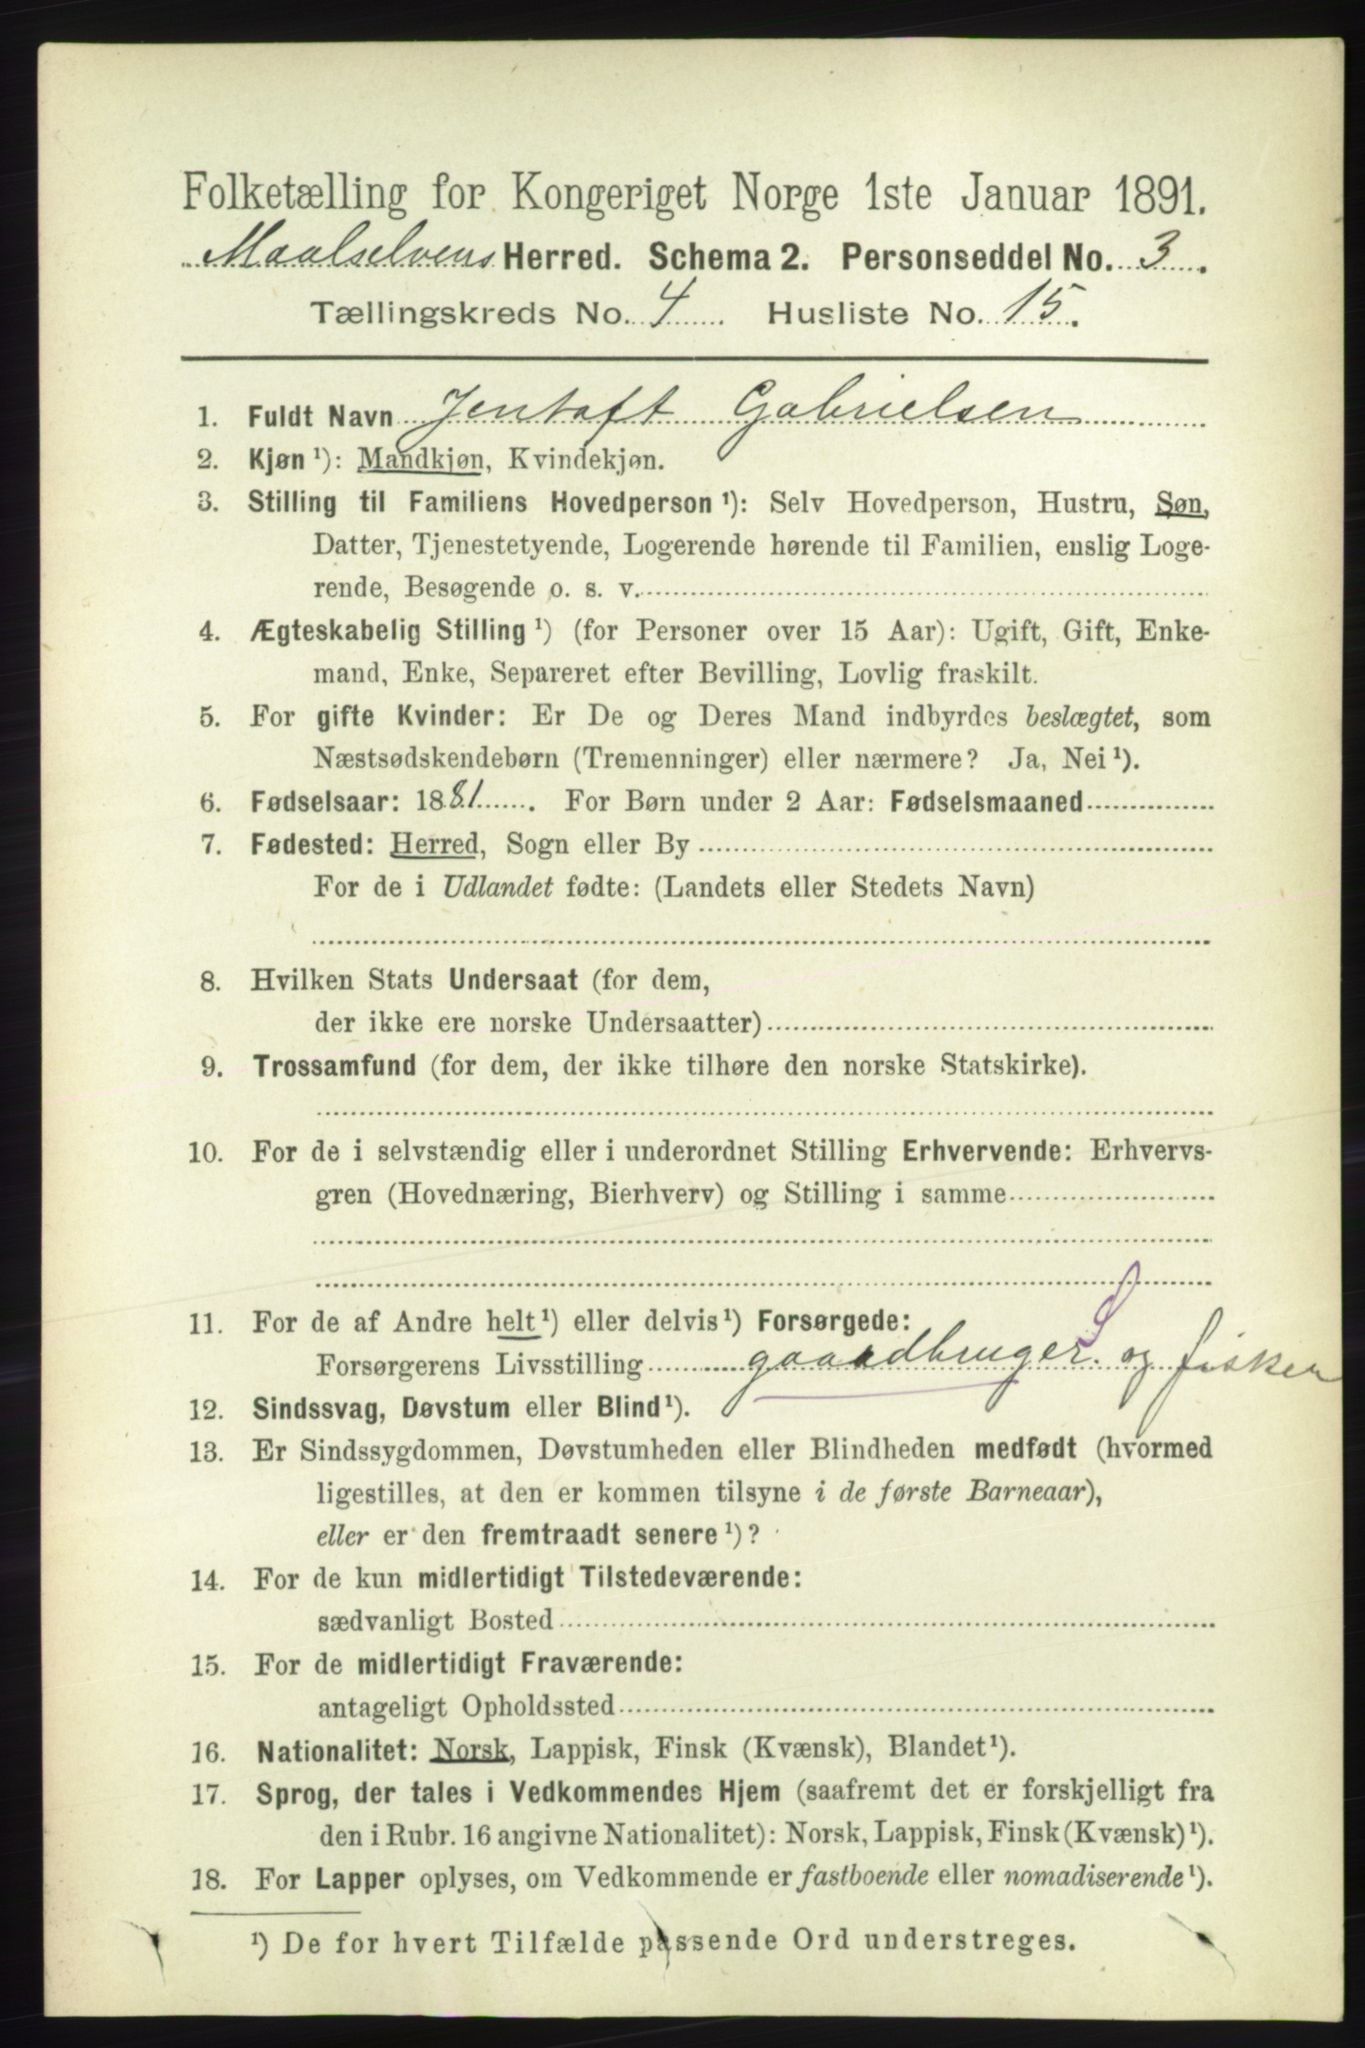 Folketælling for Kongeriget Norge 1ste Januar 1891.
Maalselvens Herred. Schema 2. Personseddel No. 3.
Tællingskreds No. 4 Husliste No. 15.
1. Fuldt Navn Jentoft Gabrielsen
2. Kjøn ¹): Mandkjøn, Kvindekjøn.
3. Stilling til Familiens Hovedperson ¹): Selv Hovedperson, Hustru, Søn,
Datter, Tjenestetyende, Logerende hørende til Familien, enslig Loge-
rende, Besøgende o. s. v.
4. Ægteskabelig Stilling ¹) (for Personer over 15 Aar): Ugift, Gift, Enke-
mand, Enke, Separeret efter Bevilling, Lovlig fraskilt.
5. For gifte Kvinder: Er De og Deres Mand indbyrdes beslægtet, som
Næstsødskendebørn (Tremenninger) eller nærmere? Ja, Nei ¹).
6. Fødselsaar: 1881. For Børn under 2 Aar: Fødselsmaaned
7. Fødested: Herred, Sogn eller By
For de i Udlandet fødte: (Landets eller Stedets Navn)
8. Hvilken Stats Undersaat (for dem,
der ikke ere norske Undersaatter)
9. Trossamfund (for dem, der ikke tilhøre den norske Statskirke).
10. For de i selvstændig eller i underordnet Stilling Erhvervende: Erhvervs-
gren (Hovednæring, Bierhverv) og Stilling i samme
11. For de af Andre helt ¹) eller delvis ¹) Forsørgede:
Forsørgerens Livsstilling gaardbruger S og fisker
12. Sindssvag, Døvstum eller Blind ¹).
13. Er Sindssygdommen, Døvstumheden eller Blindheden medfødt (hvormed
ligestilles, at den er kommen tilsyne i de første Barneaar),
eller er den fremtraadt senere ¹)?
14. For de kun midlertidigt Tilstedeværende:
sædvanligt Bosted
15. For de midlertidigt Fraværende:
antageligt Opholdssted
16. Nationalitet: Norsk, Lappisk, Finsk (Kvænsk), Blandet ¹).
17. Sprog, der tales i Vedkommendes Hjem (saafremt det er forskjelligt fra
den i Rubr. 16 angivne Nationalitet): Norsk, Lappisk, Finsk (Kvænsk) ¹).
18. For Lapper oplyses, om Vedkommende er fastboende eller nomadiserende ¹).
¹) De for hvert Tilfælde passende Ord understreges.